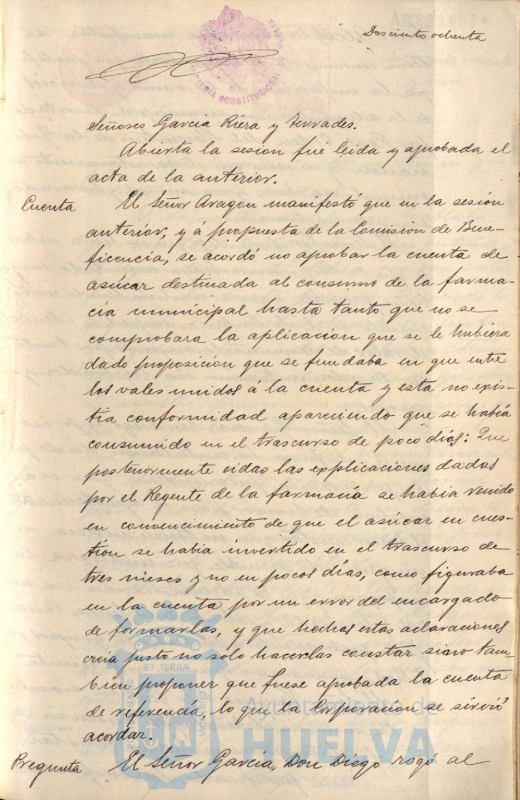 Doscientos ochenta
Señores Garcia Riera y Terrades.
Abierta la sesion fue leida y aprobada el
acta de la anterior.
Cuenta El Señor Aragon manifestó que en la sesion
anterior, y á propuesta de la Comision de Bene-
ficencia, se acordó no aprobar la cuenta de
azúcar destinada al consumo de la farma-
cia municipal hasta tanto que no se
comprobara la aplicacion que se le hubiera
dado proposicion que se fundaba en que entre
los vales unidos á la cuenta y esta no exis-
tia conformidad apareciendo que se habia
consumido en el trascurso de poco dias: Que
posteriormente oidas las explicaciones dadas
por el Regente de la farmacia se habia venido
en convencimiento de que el azúcar en cues-
tion se habia invertido en el trascurso de
tres meses y no en pocos dias, como figuraba
en la cuenta por un error del encargado
de formarlas, y que hechas estas aclaraciones
creia justo no solo hacerlas constar sino tam-
bien proponer que fuese aprobada la cuenta
de referencia, lo que la Corporacion se sirvió
acordar.
Pregunta El Señor Garcia, Don Diego rogó al
HUELVA